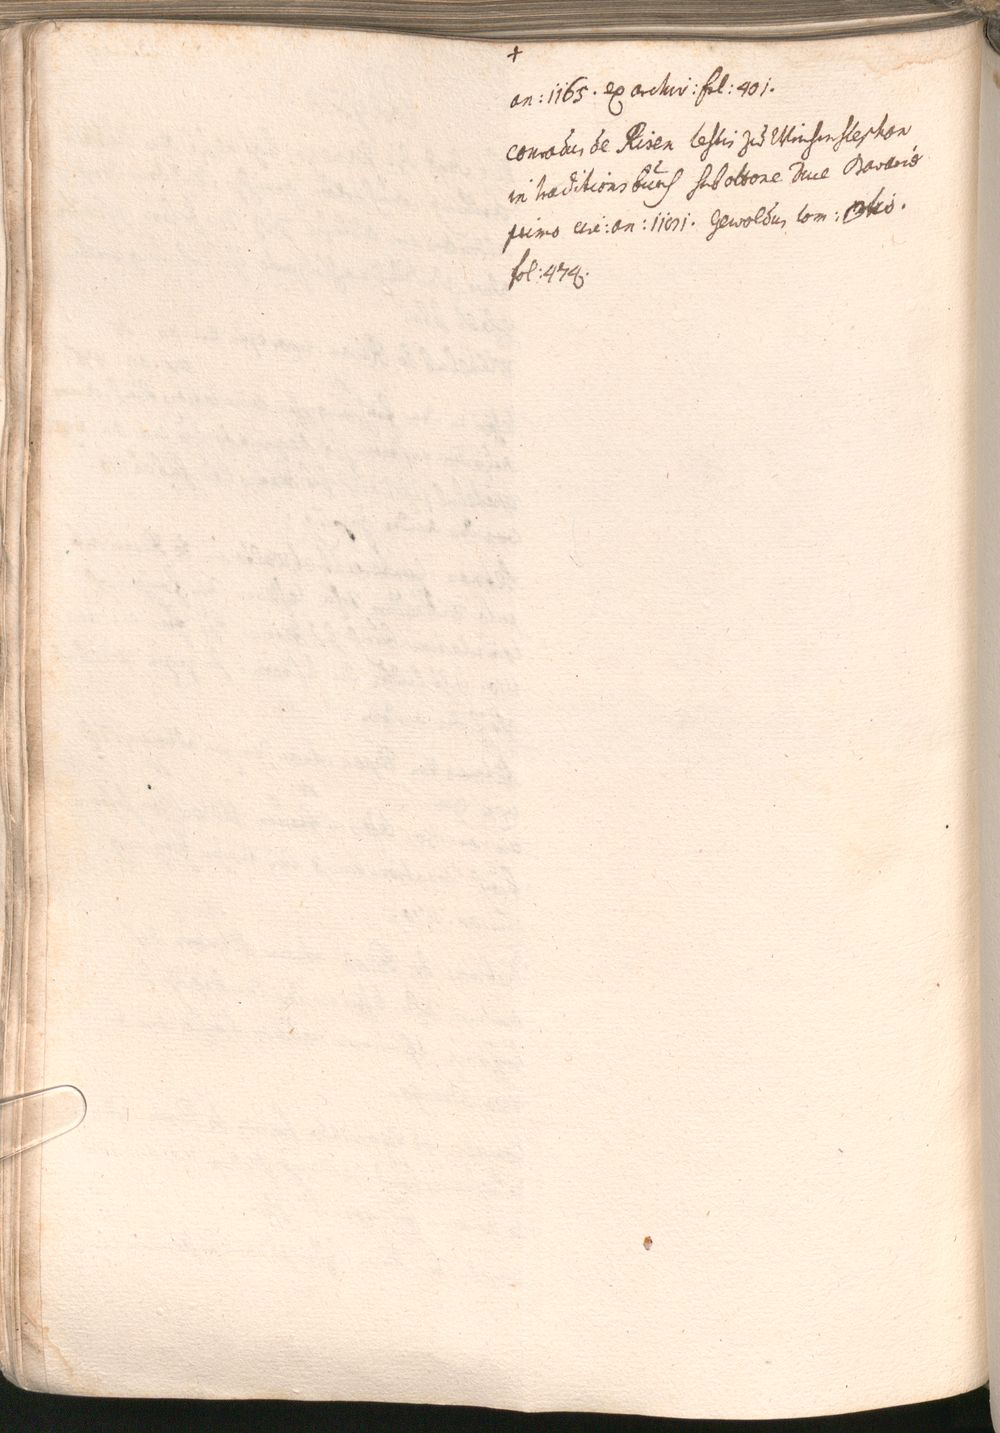 +
an: 1165. ex archiv: fol: 401.
conradus de Risen testis zu Weihenstephan
in traditionsbuech sub ottone Duce Bavariæ
primo circ: an: 1181. Gewoldus tom:
fol: 474.